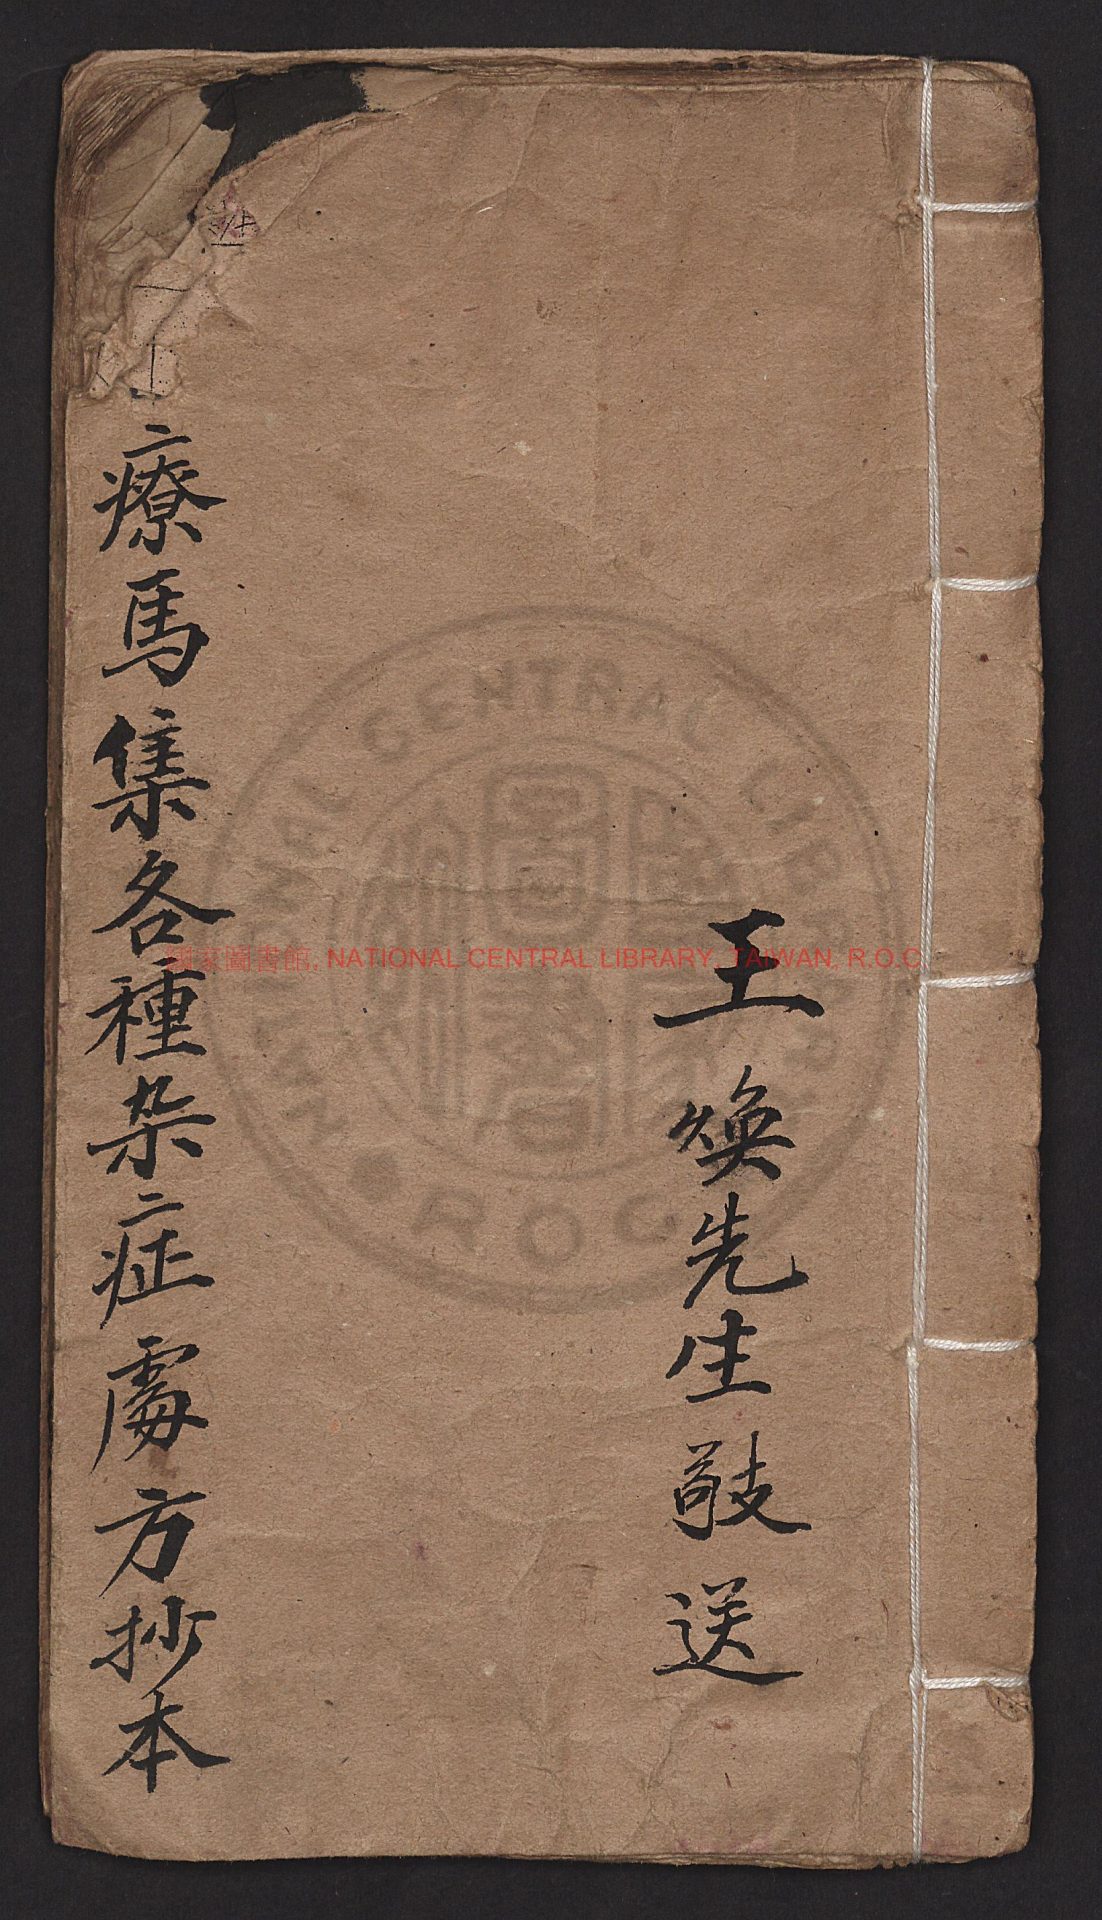 王煥先生敬送
療馬集各種杂症處方抄本
國家圖書館, NATIONAL CENTRAL LIBRARY, TAIWAN, R.O.C
NATIONAL CENTRAL LIBRARY
R.O.C